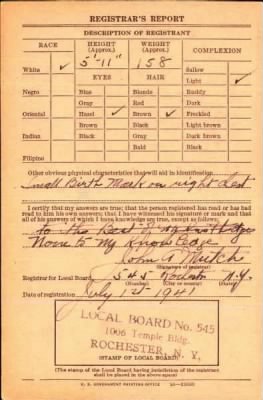 REGISTRAR'S REPORT
DESCRIPTION OF REGISTRANT
RACE
HEIGHT (Approx.)
WEIGHT (Approx.)
COMPLEXION
White ✓
5'-11"
158
Sallow
EYES
HAIR
Light ✓
Negro
Blue
Blonde
Ruddy
Gray
Red
Dark
Oriental
Hazel ✓
Brown ✓
Freckled
Brown
Black
Light brown
Indian
Black
Gray
Dark brown
Bald
Black
Filipino
Other obvious physical characteristics that will aid in identification
Small Birth Mark on right
I certify that my answers are true; that the person registered has read or has had
read to him his own answers; that I have witnessed his signature or mark and that
all of his answers of which I have knowledge are true, except as follows:
To the Best of my Knowledge
None to my Knowledge
John A Mutch
(Signature of registrar)
Registrar for Local Board 545 Rochester N.Y.
(Number) (City or county) (State)
Date of registration July 1st 1941
LOCAL BOARD No. 545
1006 Temple Bldg.
ROCHESTER, N. Y.
(STAMP OF LOCAL BOARD)
(The stamp of the Local Board having jurisdiction of the registrant
shall be placed in the above space)
U. S. GOVERNMENT PRINTING OFFICE